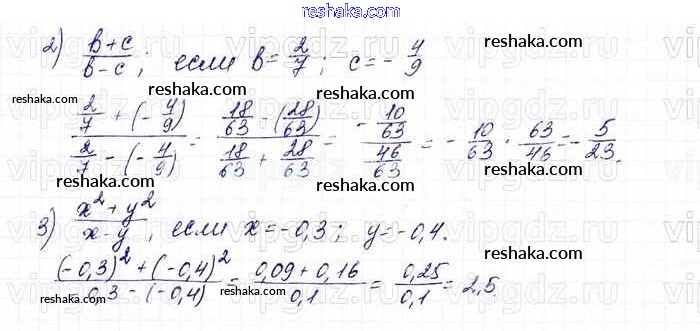 reshaka.com
2) (b+c)/(b-c); если b = 2/7; c = -4/9
reshaka.com reshaka.com
(2/7 + (-4/9))/(2/7 - (-4/9)) = (18/63 - (28/63))/(18/63 + 28/63) = -(10/63)/(46/63) = -10/63 · 63/46 = -5/23.
reshaka.com reshaka.com
reshaka.com reshaka.com
3) (x² + y²)/(x-y), если x = -0,3; y = -0,4.
reshaka.com
((-0,3)² + (-0,4)²)/(-0,3 - (-0,4)) = (0,09 + 0,16)/0,1 = 0,25/0,1 = 2,5.
reshaka.com reshaka.com
reshaka.com